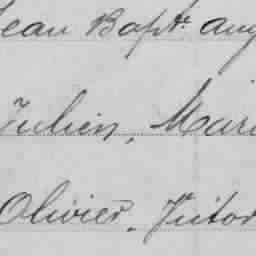 Jean Bapte. Aug
Julien, Mari
Olivier, Victor